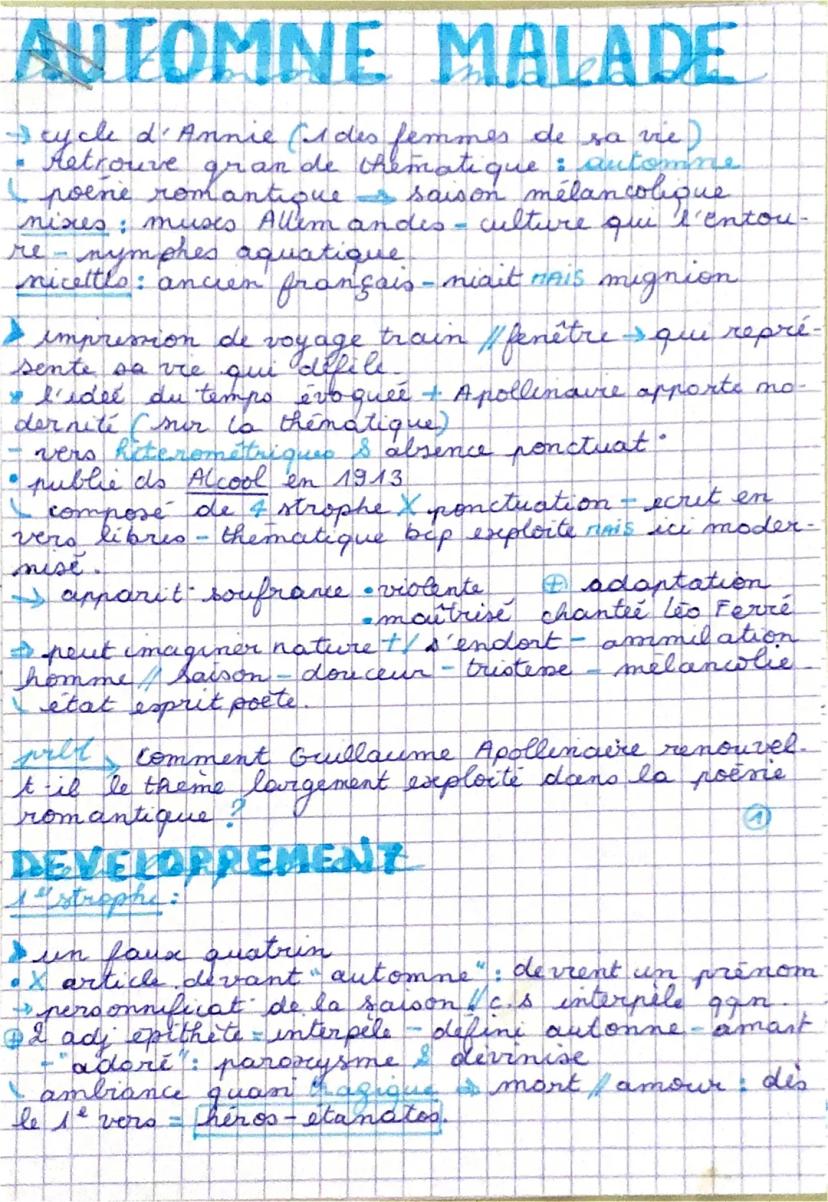 AUTOMNE MALADE
→ cycle d'Annie (1 des femmes de sa vie)
• Retrouve grande thématique : automne
↳ poème romantique → saison mélancolique
nixes : muses Allemandes - culture qui l'entou-
re - nymphes aquatique
nicettes : ancien français - niait MAIS mignion
➤ impression de voyage train // fenêtre → qui repré-
sente sa vie qui défile.
• l'ideé du temps évoqueé + Apollinaire apporte mo-
dernité (sur la thématique)
- vers héterométriques & absence ponctuat°
• publié ds Alcool en 1913
↳ composé de 4 strophe X ponctuation - ecrit en
vers libres - thématique bcp exploite MAIS ici moder-
nisé.
→ apparit° soufrance • violente ⊕ adaptation
• maîtrisé chanteé Léo Ferré
⇒ peut imaginer nature +/ s'endort - assimilation
homme // saison - douceur - tristesse - mélancolie
↳ état esprit poète.
prblt ↳ Comment Guillaume Apollinaire renouvel-
t-il le thème largement exploité dans la poésie
romantique ?
①
DEVELOPPEMENT
1ere strophe :
➤ un faux quatrin
• X article devant "automne" : devient un prénom
→ personnificat° de la saison // c.s interpèle qqn.
⊕ 2 adj épithète = interpèle - défini automne - amant
- "adoré" : paroxysme & divinise
↳ ambiance quasi tragique ⇒ mort // amour : dès
le 1e vers = héros - étanatos.